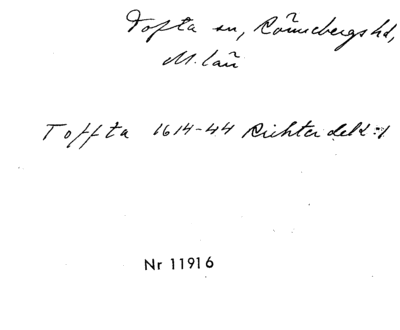 Tofta sn, Rönnebergs hd,
M. län
Toffta 1614-44 Richter del 2 :1
Nr 11916